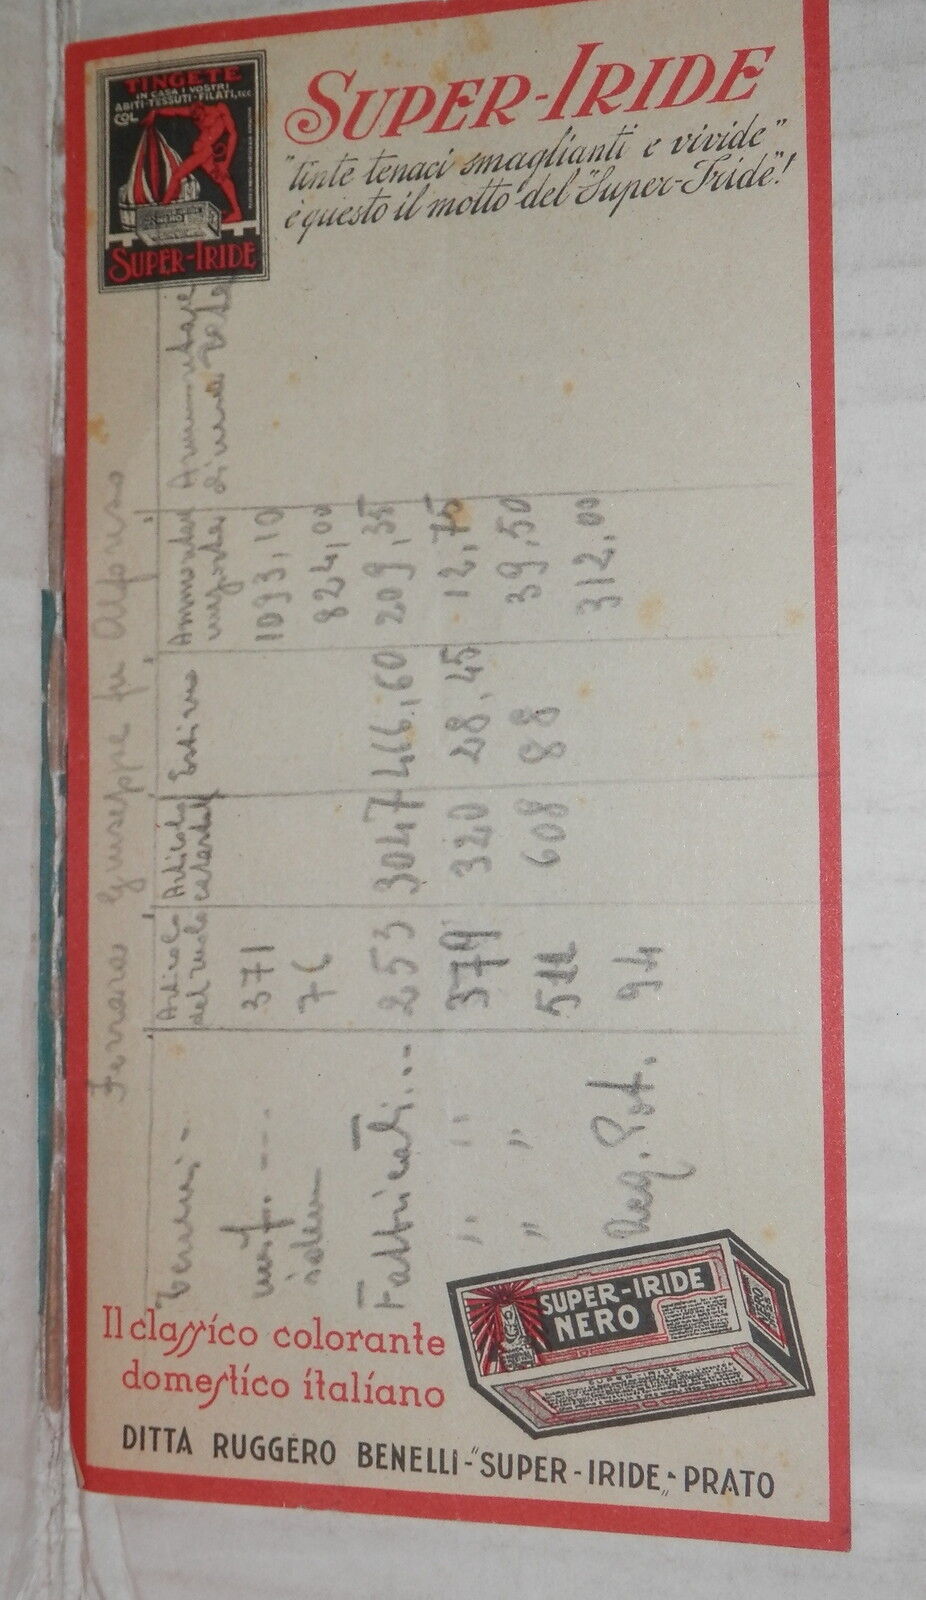 TINGETE
IN CASA I VOSTRI
ABITI-TESSUTI-FILATI, ECC
COL
NERO
SUPER-IRIDE
SUPER-IRIDE
"tinte tenaci smaglianti e vivide"
è questo il motto del "Super-Iride"!
Ferrara Giuseppe fu Alfonso
Articolo del ruolo
Articolo catastale
Estimo
Ammontare
Terreni
371 1093,10
idem 76 824,00
Fabbricati... 253 3047 466,60 209,35
" " 379 320 28,45 12,75
" " 511 608 88 39,50
94 312,00
SUPER-IRIDE
NERO
Il classico colorante
domestico italiano
DITTA RUGGERO BENELLI-"SUPER-IRIDE"-PRATO